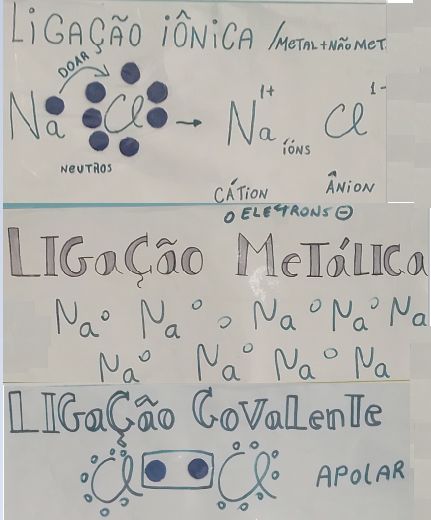 LIGAÇÃO IÔNICA /METAL+NÃO MET.
DOAR
Na Cl → Na 1+ Cl 1-
ÍONS
NEUTROS
CÁTION ÂNION
ELETRONS ⊖
LIGAÇÃO METÁLICA
Na Na Na Na Na
Na Na Na Na
LIGAÇÃO COVALENTE
Cl Cl APOLAR